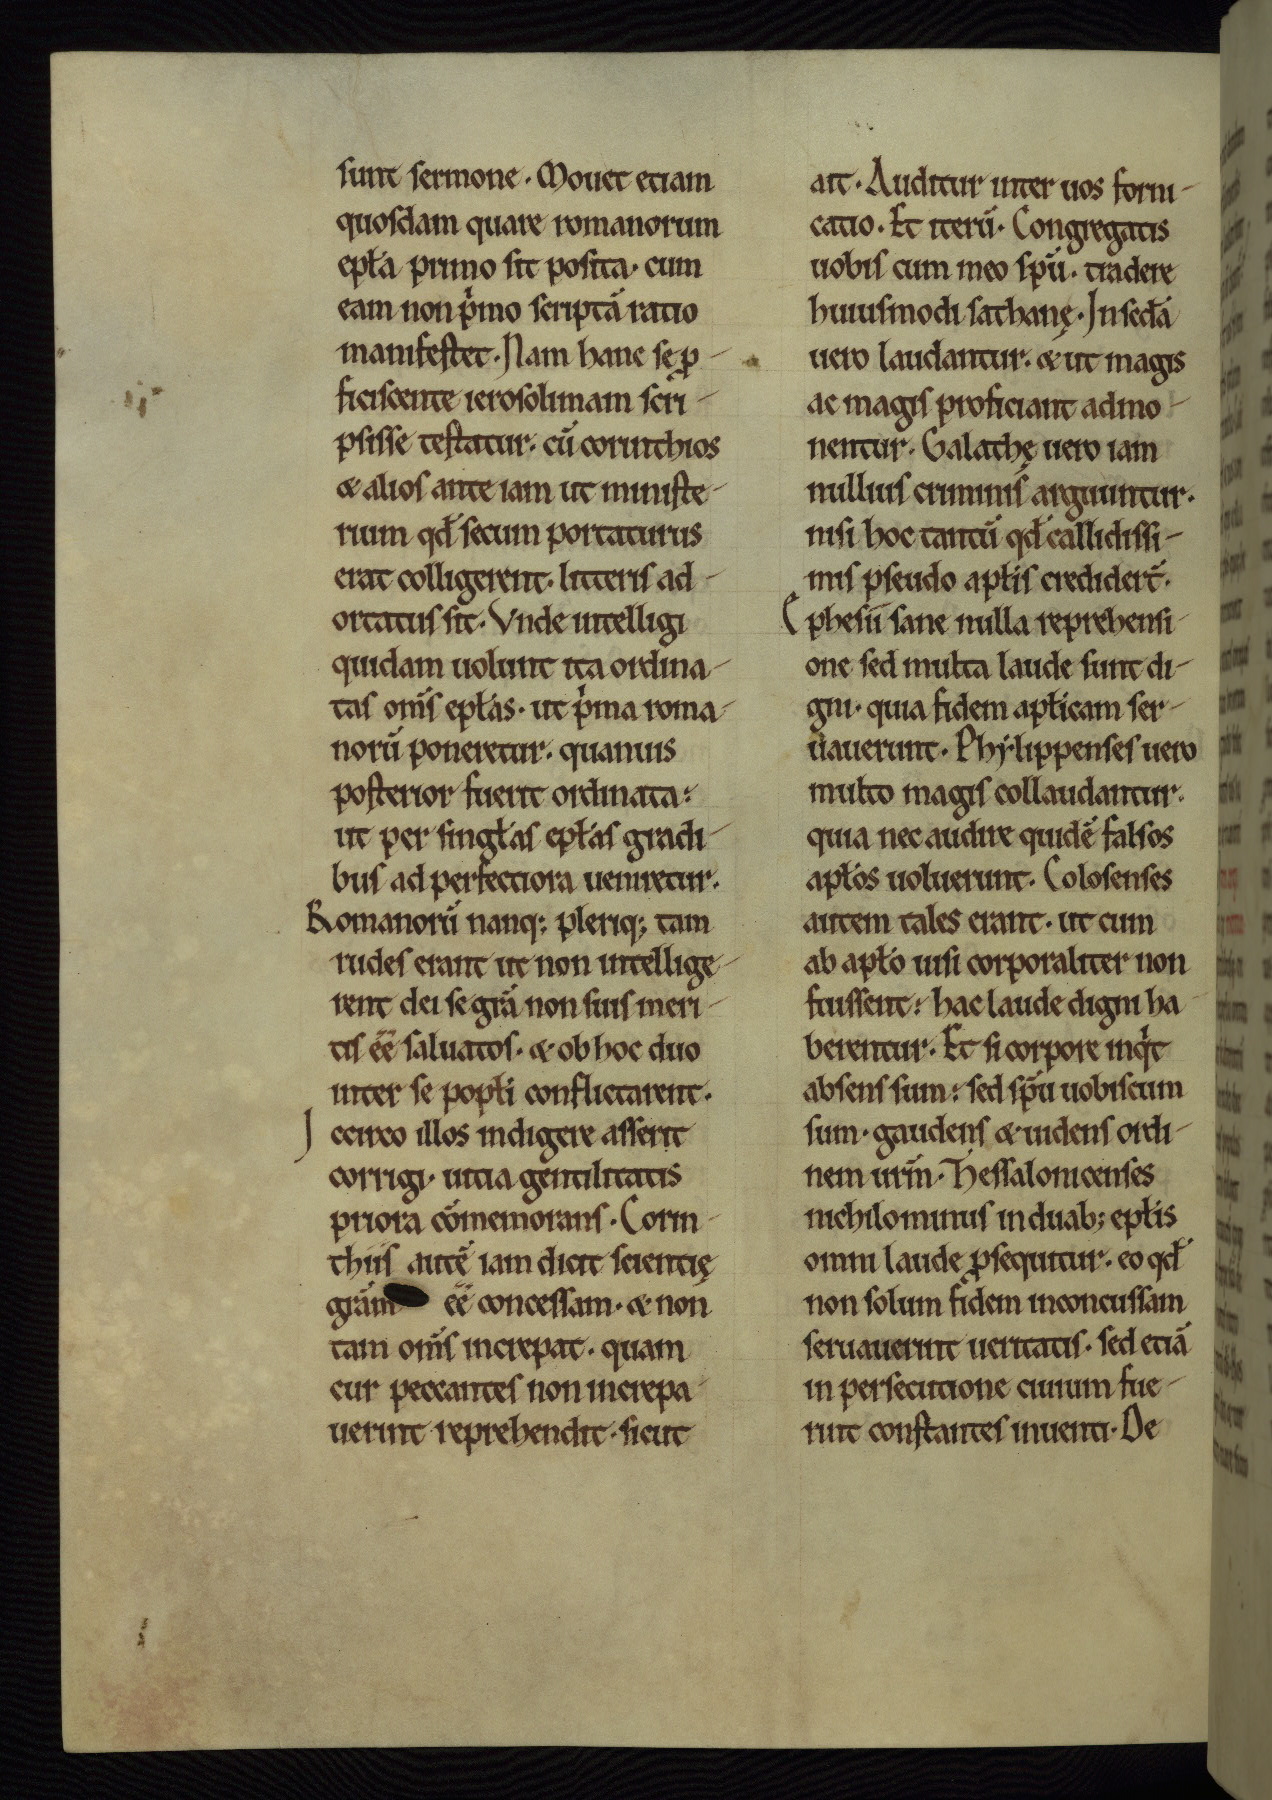 sunt sermone · Mouet etiam
quosdam quare romanorum
epl̃a primo sit posita · cum
eam non pͥmo scriptã ratio
manifestet · Nam hanc se ꝓ-
ficiscente ierosolimam scri-
psisse testatur · cũ corinthios
& alios ante iam ut ministe-
rium qđ secum portaturus
erat colligerent · litteris ad-
ortatus sit · Vnde intelligi
quidam uolunt ita ordina-
tas om̃s epl̃as · ut pͥma roma-
norũ poneretur · quamuis
posterior fuerit ordinata :
ut per singl̃as epl̃as gradi-
bus ad perfectiora ueniretur ·
Romanorũ nanq; pleriq; tam
rudes erant ut non intellige-
rent dei se grã non suis meri-
tis eẽ saluatos · & ob hoc duo
inter se popl̃i conflictarent ·
Iccirco illos indigere asserit
corrigi · uitia gentilitatis
priora cõmemorans · Corin-
thiis autẽ iam dicit scientię
grãm eẽ concessam · & non
tam om̃s increpat · quam
cur peccantes non increpa-
uerint reprehendit · sicut
ait · Auditur inter uos forni-
catio · Et iterũ · Congregatis
uobis cum meo spũ · tradere
huiusmodi sathanę · In secđa
uero laudantur · & ut magis
ac magis proficiant admo-
nentur · Galathę uero iam
nullius criminis arguuntur ·
nisi hoc tantũ qđ callidissi-
mis pseudo apl̃is credider̃t ·
Ephesii sane nulla reprehensi-
one sed multa laude sunt di-
gni · quia fidem apl̃icam ser-
uauerunt · Phylippenses uero
multo magis collaudantur ·
quia nec audire quidẽ falsos
apl̃os uoluerunt · Colosenses
autem tales erant · ut cum
ab apl̃o uisi corporaliter non
fuissent : hac laude digni ha-
berentur · Et si corpore inqͥt
absens sum : sed spũ uobiscum
sum · gaudens & uidens ordi-
nem ur̃m · Thessalonicenses
nichilominus in duab; epl̃is
omni laude ꝓsequitur · eo qđ
non solum fidem inconcussam
seruauerint ueritatis · sed etiã
in persecutione ciuium fue-
rint constantes inuenti · De